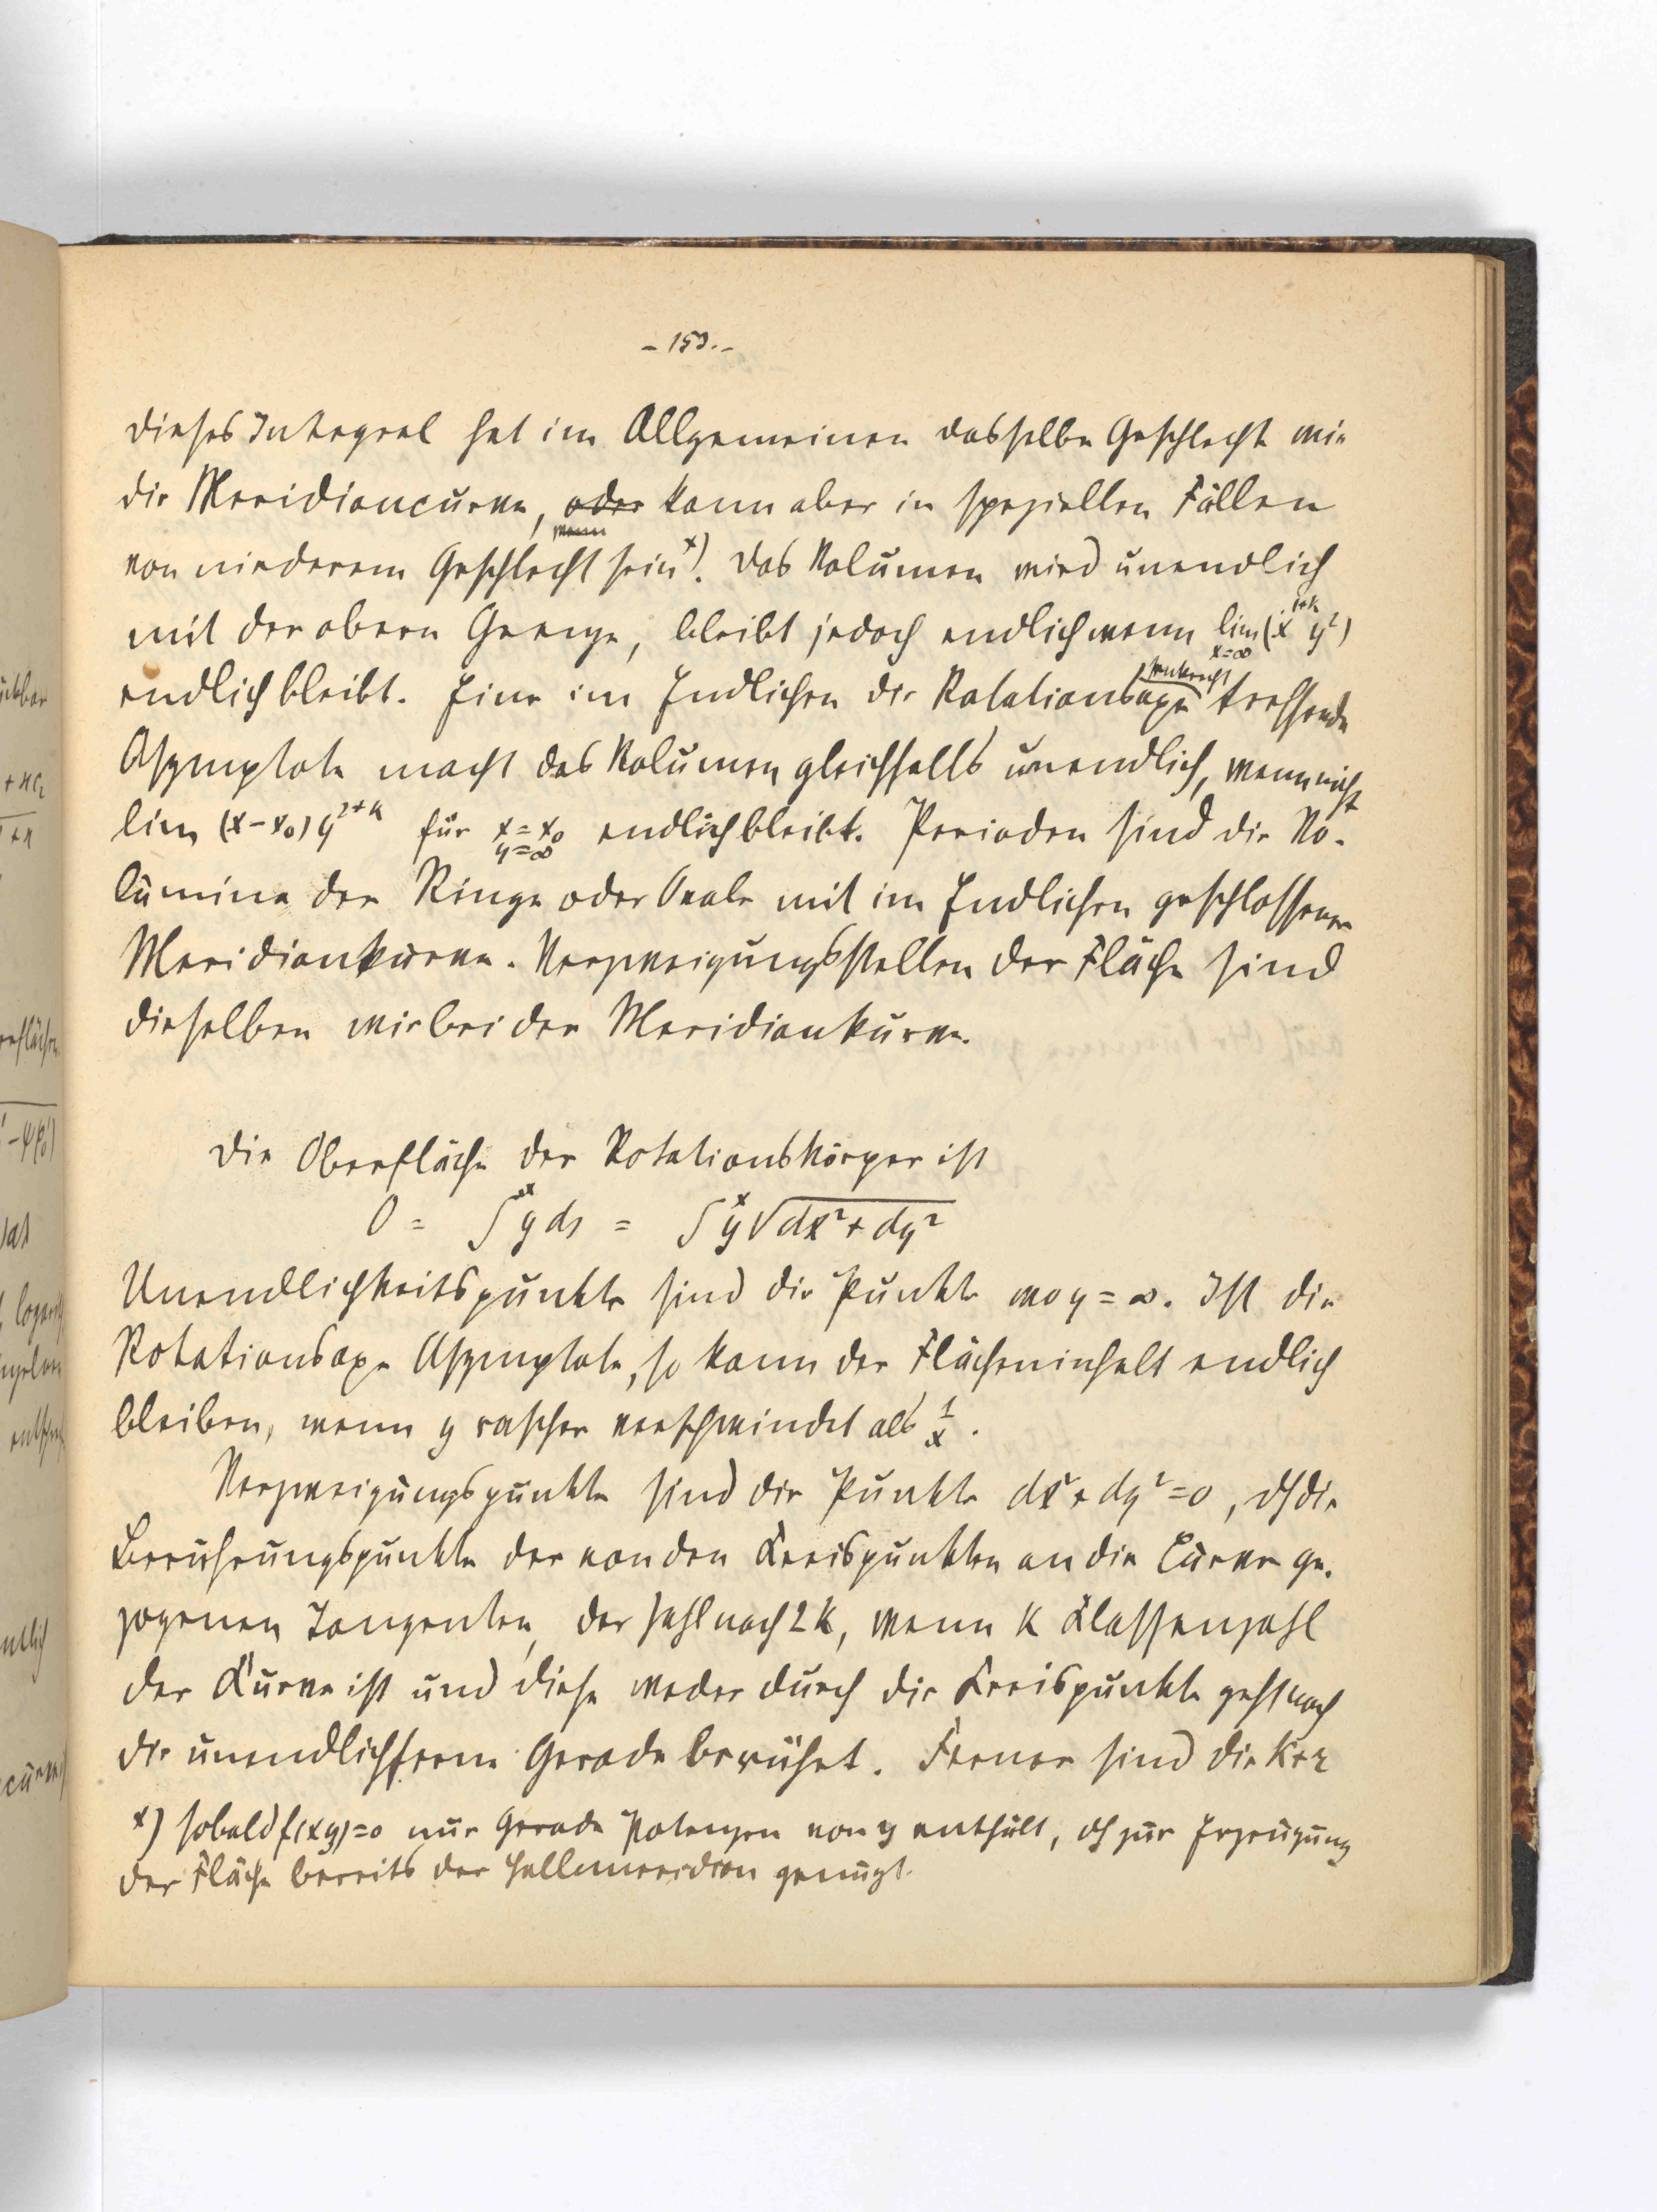 - 153. -
dieses Integral hat im Allgemeinen dasselbe Geschlecht wie
die Meridiancurve, oder kann aber in speziellen Fällen
wenn
von niederem Geschlecht sein x). Das Volumen wird unendlich
mit der obern Grenze, bleibt jedoch endlich wenn lim x=∞ (x^{1+k} y²)
endlich bleibt. Eine im Endlichen die Rotationsaxe senkrecht treffende
Asymptote macht das Volumen gleichfalls unendlich, wenn nicht
lim (x-x₀) y^{2+k} für x=x₀ y=∞ endlich bleibt. Perioden sind die Vo-
lumina der Ringe oder Ovale mit im Endlichen geschlossener
Meridiankurve. Verzweigungsstellen der Fläche sind
dieselben wie bei der Meridiankurve.
Die Oberfläche der Rotationskörper ist
O = ∫^x y ds = ∫^x y √(dx² + dy²)
Unendlichkeitspunkte sind die Punkte wo y = ∞. Ist die
Rotationsaxe Asymptote, so kann der Flächeninhalt endlich
bleiben, wenn y rascher verschwindet als 1/x.
Verzweigungspunkte sind die Punkte dx² + dy² = 0, dh die
Berührungspunkte der von den Kreispunkten an die Curve ge-
zogenen Tangenten, der Zahl nach 2k, wenn k Klassenzahl
der Kurve ist und diese weder durch die Kreispunkte geht noch
die unendlichferne Gerade berührt. Ferner sind die k+r
x) sobald f(xy)=0 nur gerade Potenzen von y enthält, dh zur Erzeugung
der Fläche bereits der Halbmeridian genügt.